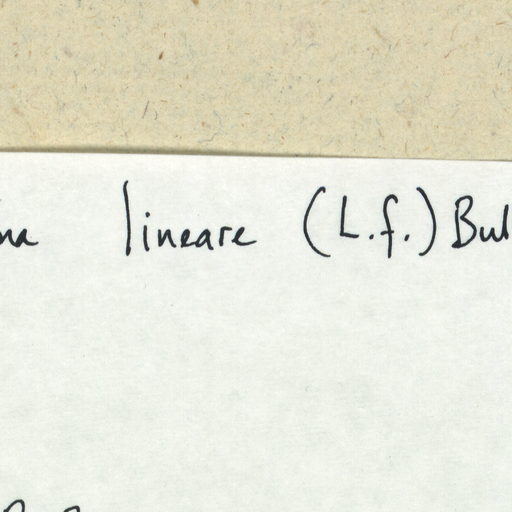 na lineare (L.f.) Bul